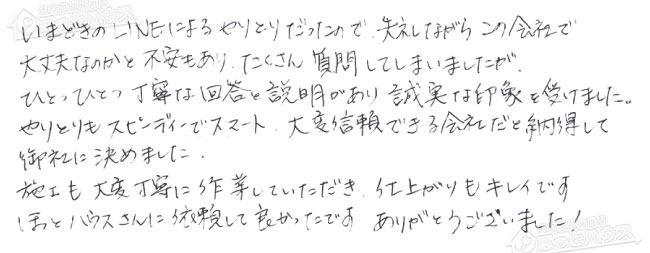 いまどきのLINEによるやりとりだったので、失礼しながらこの会社で
大丈夫なのかと不安もあり、たくさん質問してしまいましたが、
ひとつひとつ丁寧な回答と説明があり誠実な印象を受けました。
やりとりもスピンディでスマート、大変信頼できる会社だと納得して
御社に決めました。
施工も大変丁寧に作業していただき、仕上がりもキレイです
ほっとハウスさんに依頼して良かったです ありがとうございました!